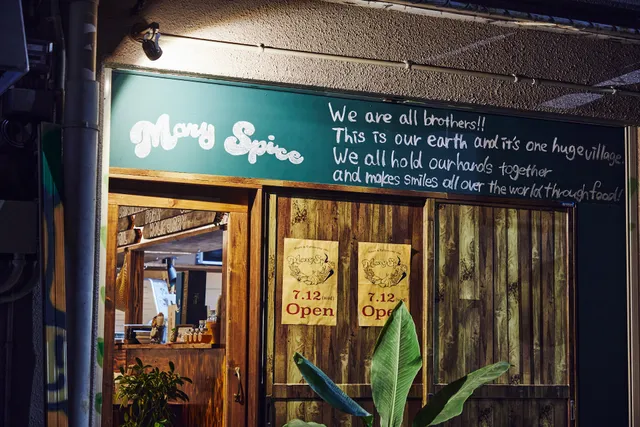 Mary Spice
We are all brothers!!
This is our earth and it's one huge village.
We all hold our hands together
and makes smiles all over the world through food!!
Mary Spice
7.12
Open
7.12
Ope